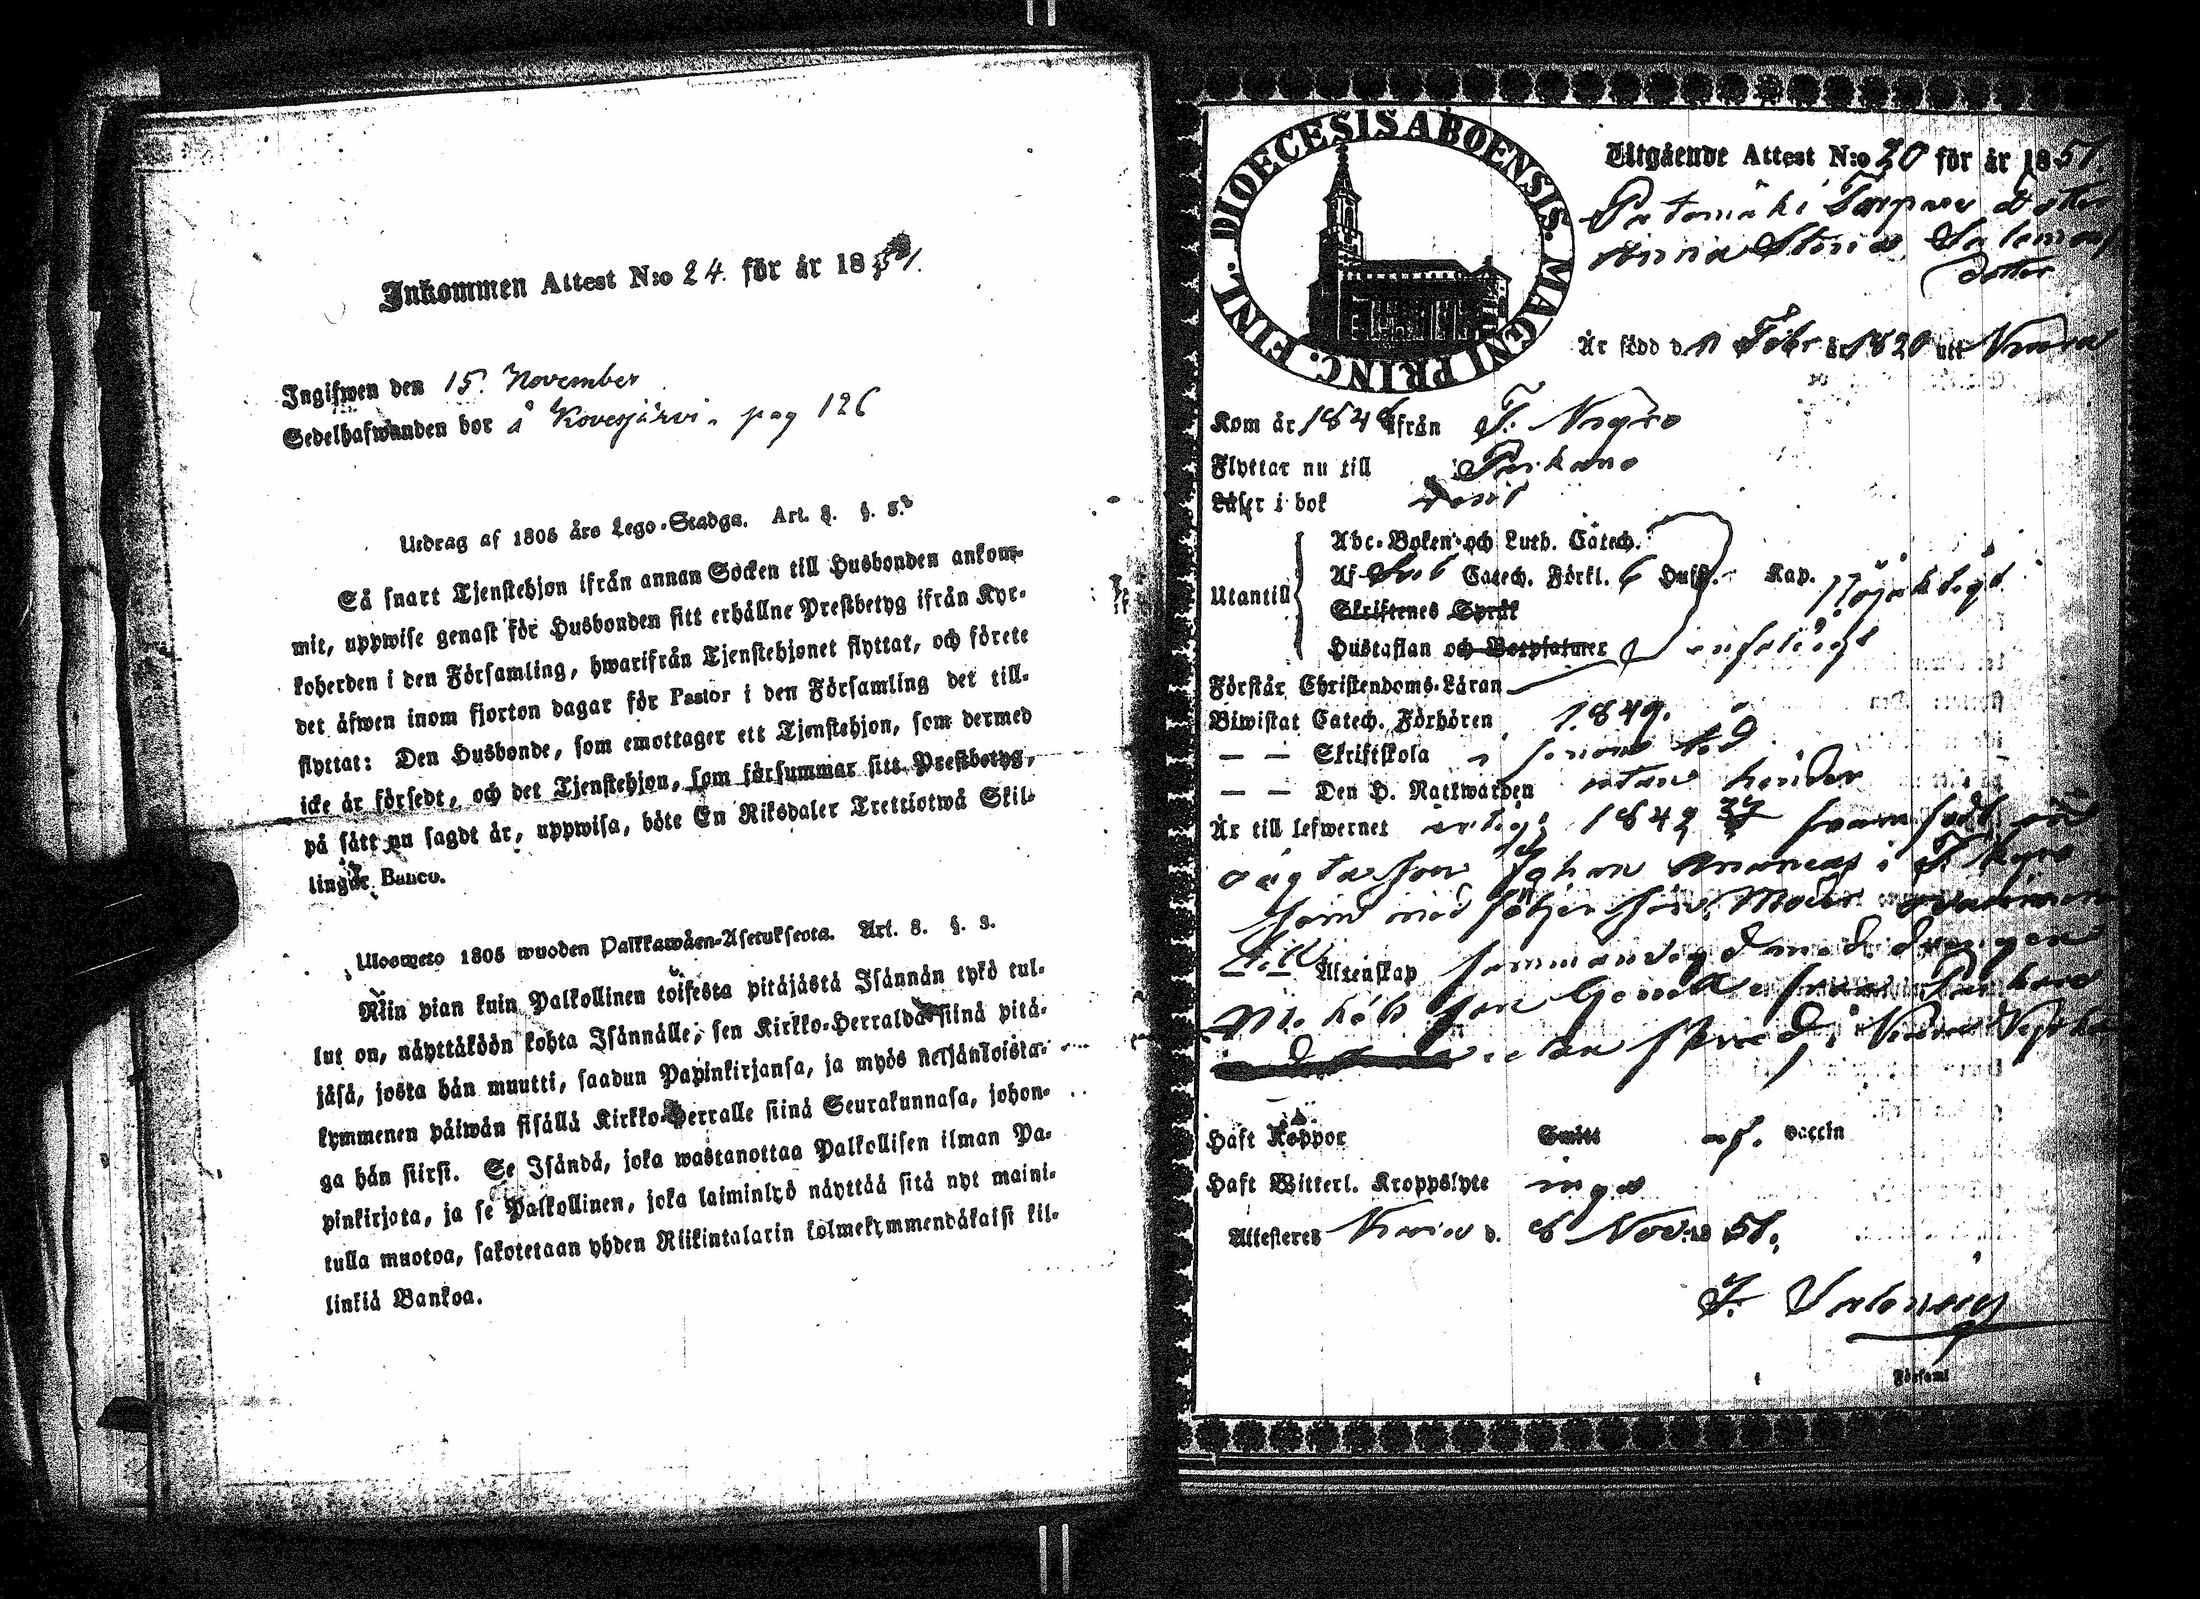 Inkommen Attest N:o 24. för år 1851.
Ingifwen den 15. November
Sedelhafwanden bor å Kovesjärvi. pag 126
Utdrag af 1805 års Lego-Stadga. Art. 8. §. 3.
Så snart Tjenstehjon ifrån annan Socken till Husbonden ankom-
mit, uppwise genast för Husbonden sitt erhållne Prestbetyg ifrån Kyr-
koherden i den Församling, hwarifrån Tjenstehjonet flyttat, och förete
det äfwen inom fjorton dagar för Pastor i den Församling det till-
flyttat: Den Husbonde, som emottager ett Tjenstehjon, som dermed
icke är försedt, och det Tjenstehjon, som försummar sitt Prestbetyg,
på sätt nu sagdt är, uppwisa, böte En Riksdaler Trettiotwå Skil-
lingar Banco.
Ulosweto 1805 wuoden Palkkawäen-Asetuksesta. Art. 8. §. 3.
Niin pian kuin Palkollinen toisesta pitäjästä Isännän tykö tul-
lut on, näyttäköön kohta Isännälle, sen Kirkko-Herralda siinä pitä-
jäsä, josta hän muutti, saadun Papinkirjansa, ja myös neljäntoista-
kymmenen päiwän sisällä Kirkko-Herralle siinä Seurakunnasa, johon-
ga hän siirsi. Se Isändä, joka wastanottaa Palkollisen ilman Pa-
pinkirjata, ja se Palkollinen, joka laiminlyö näyttää sitä nyt maini-
tulla muotoa, sakotetaan yhden Riikintalarin kolmekymmendäkaksi kil-
linkiä Bankoa.
DIOECESIS ABOENSIS. MAGNI PRINC. FINL.
Utgående Attest N:o 20 för år 1851.
Torpare Dotter
Salomons
dotter
Är född d. 11 Febr år 1820 uti
Kom år 1846 ifrån T. Kyro
Flyttar nu till Parkano
Läser i bok
Utantill
Abc-Boken och Luth. Catech.
Af Catech. Förkl. 6 Hufst. Kap.
Skriftenes Språk
Hustaflan och Botpsalmer
Förstår Christendoms-Läran
Biwistat Catech. Förhören 1849.
— — Skriftskola
— — Den H. Nattwarden utan hinder
Är till lefwernet 1842 27
oägta son Johan Ananias i T. Kyro
som nu följer sin Moder
till
— — Äktenskap med drengen
Parkano
Haft Koppor Smitt af vaccin
Haft Witterl. Kroppslyte inga
Attesteres d. 8 Nov. 18 51.
Församl